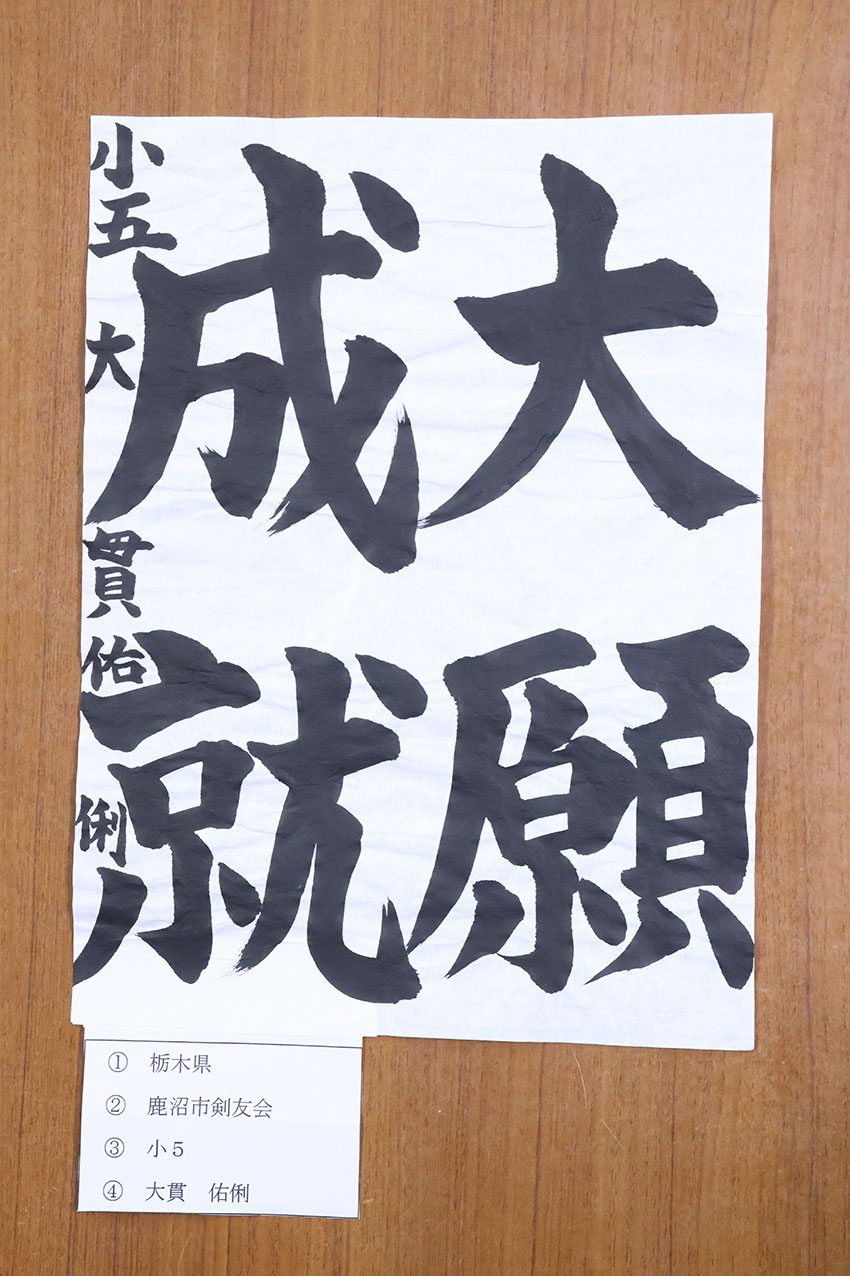 大願
成就
小五 大貫佑俐
① 栃木県
② 鹿沼市剣友会
③ 小５
④ 大貫 佑俐